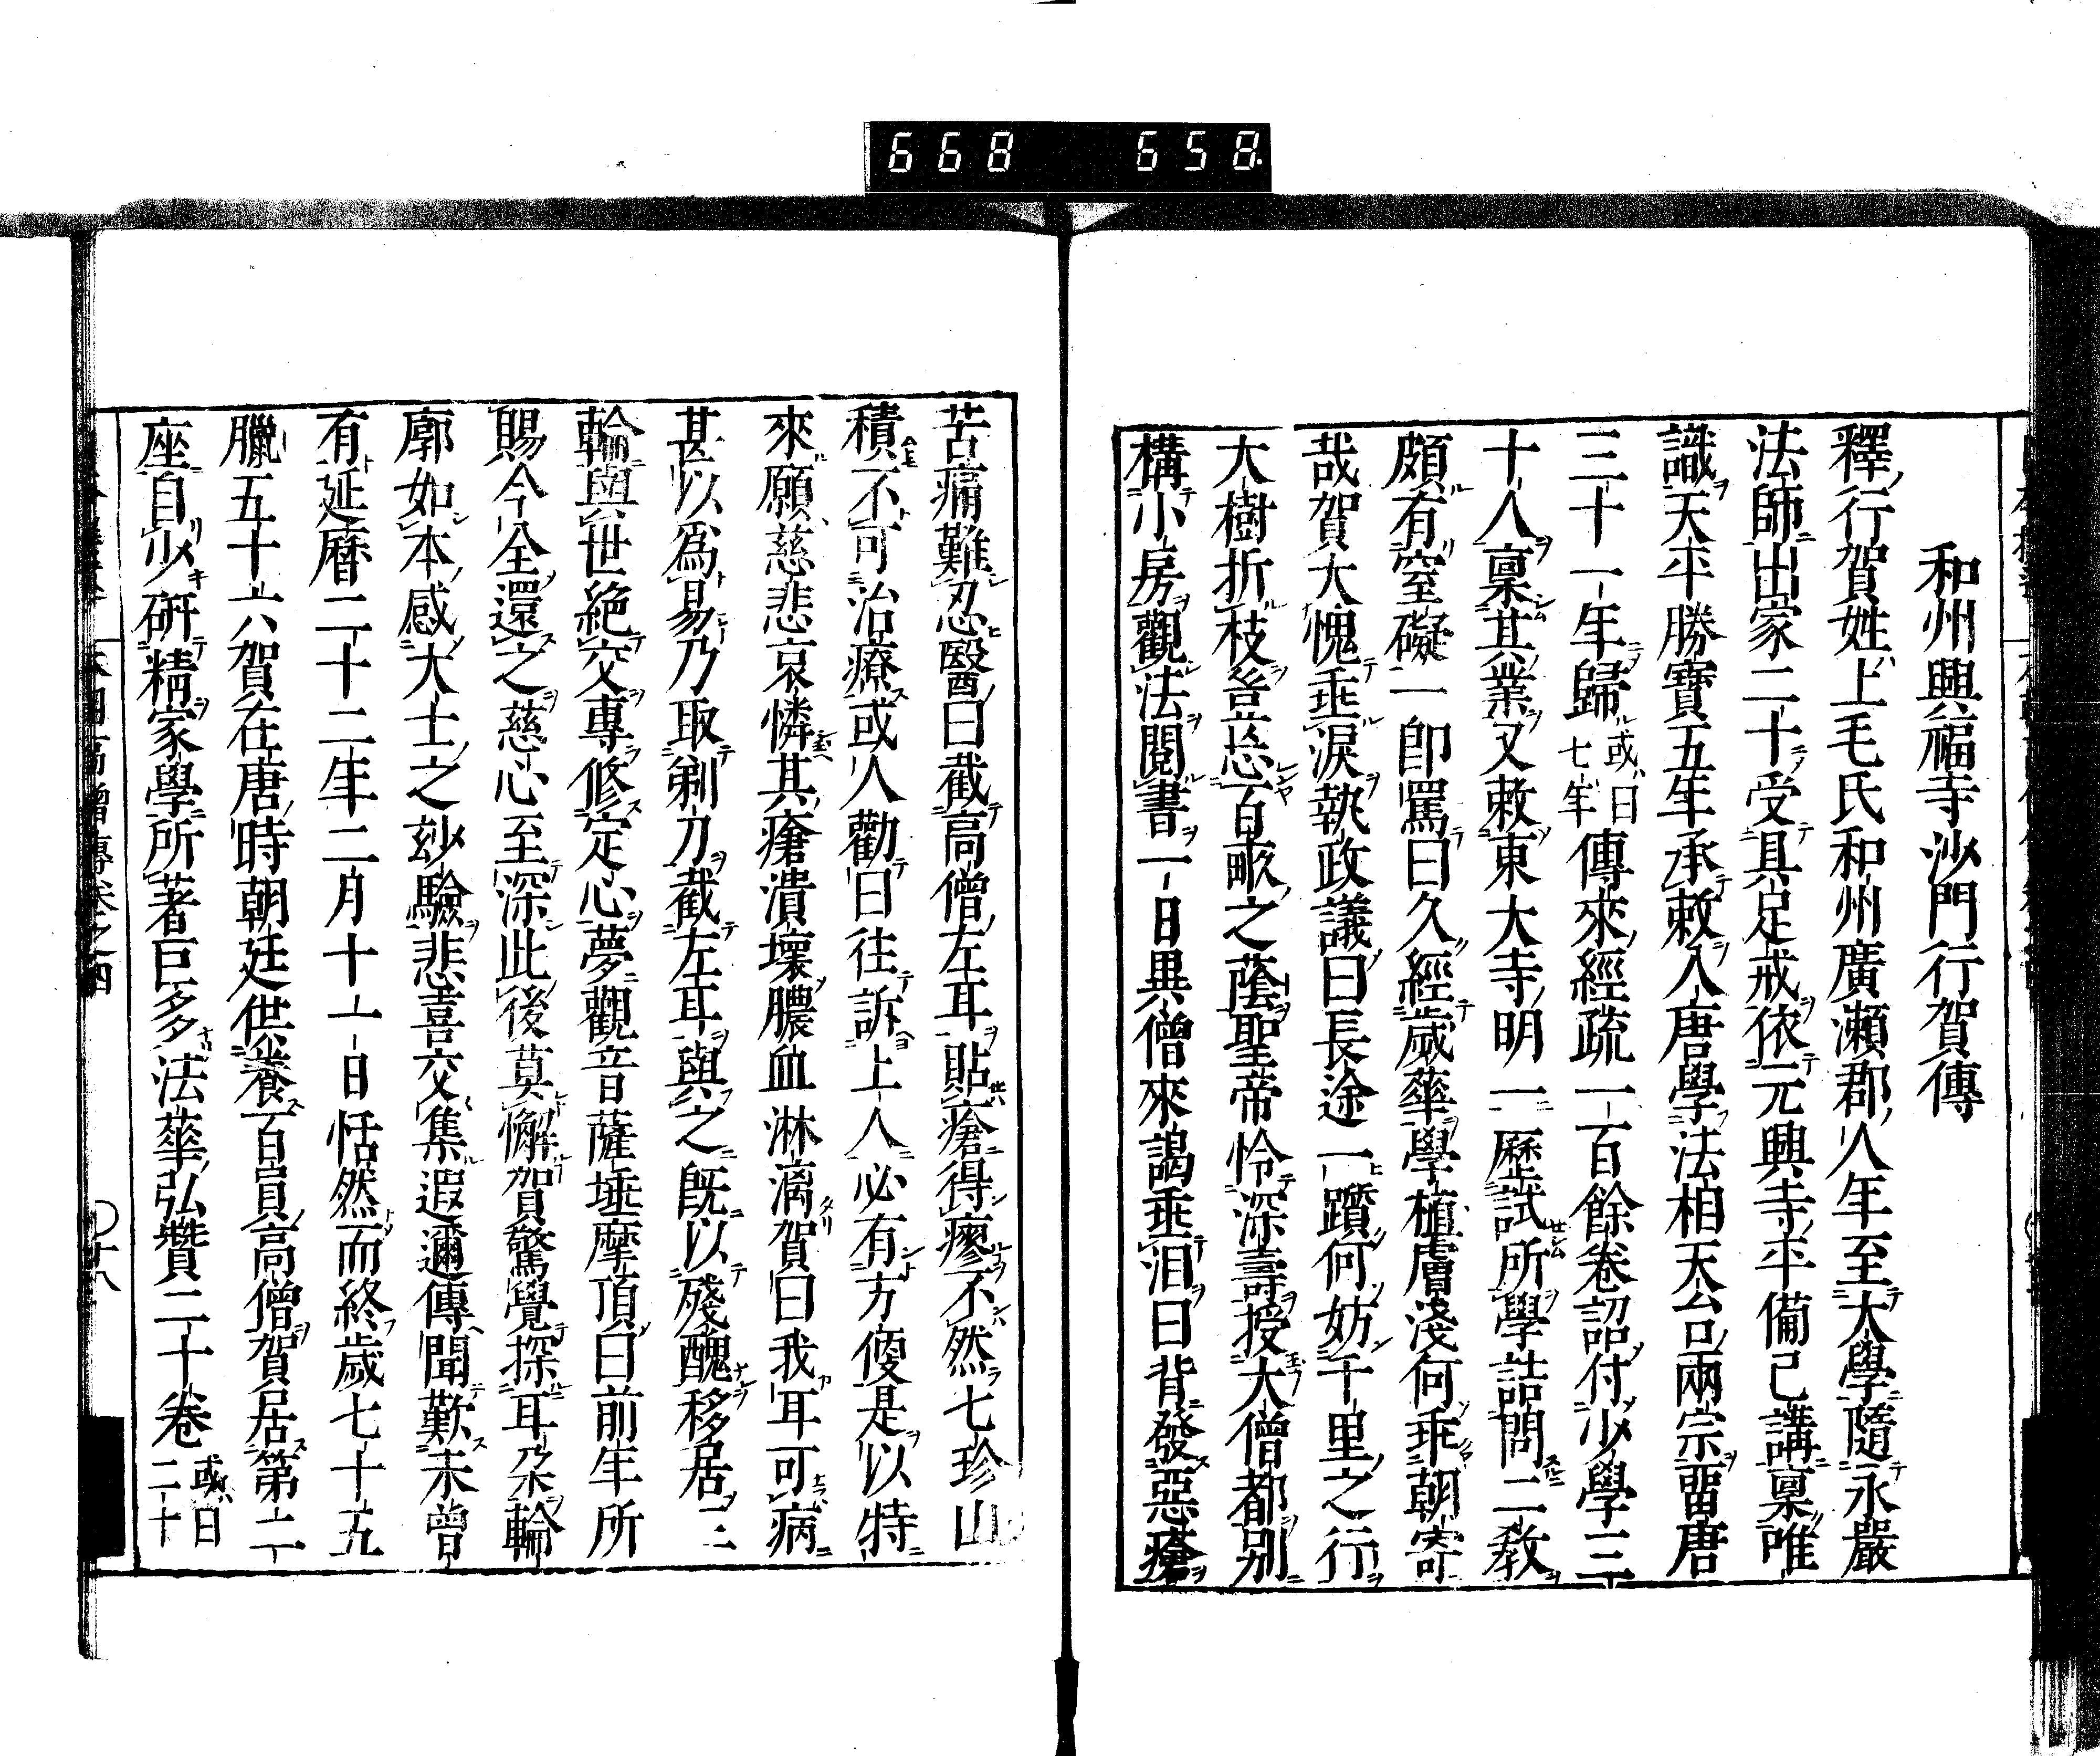 668 658.
和州興福寺沙門行賀傳
釋行賀姓上毛氏和州廣瀨郡人年至大學隨永嚴
法師出家二十受具足戒依元興寺平備己講稟唯
識天平勝寶五年承敕入唐學法相天台兩宗畱唐
三十一年歸或曰七年傳來經疏一百餘卷詔付少學三
十人稟其業又敕東大寺明一歷試所學詰問二教
頗有窒礙一卽罵曰久經歲華學植膚淺何乖朝寄
哉賀大愧垂淚執政議曰長途一躓何妨千里之行
大樹折枝豈忘百畝之蔭聖帝怜深壽授大僧都別
構小房觀法閱書一日異僧來謁垂泪曰背發惡瘡
苦痛難忍醫曰截高僧左耳貼瘡得瘳不然七珍山
積不可治療或人勸曰往訴上人必有方便是以特
來願慈悲哀憐其瘡潰壞膿血淋漓賀曰我耳可病
甚以爲易乃取剃刀截左耳與之既以殘醜移居三
輪與世絶交專修定心夢觀音薩埵摩頂曰前年所
賜今全還之慈心至深此後莫懈賀驚覺探耳朶輪
廓如本感大士之玅驗悲喜交集遐邇傳聞歎未曾
有延曆二十二年二月十一日恬然而終歲七十五
臘五十六賀在唐時朝廷供養百員高僧賀居第二
座自少研精家學所著巨多法華弘贊二十卷或曰二十
本朝高僧傳卷之四 〇十八